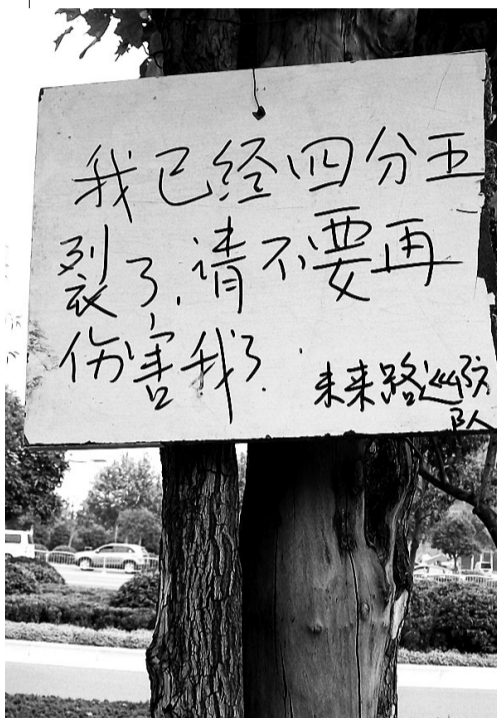 我已经四分五
裂了,请不要再
伤害我了.
未来路巡防
队